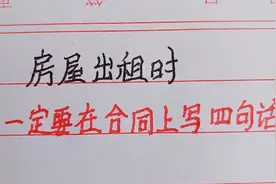 房屋出租时
一定要在合同上写四句话